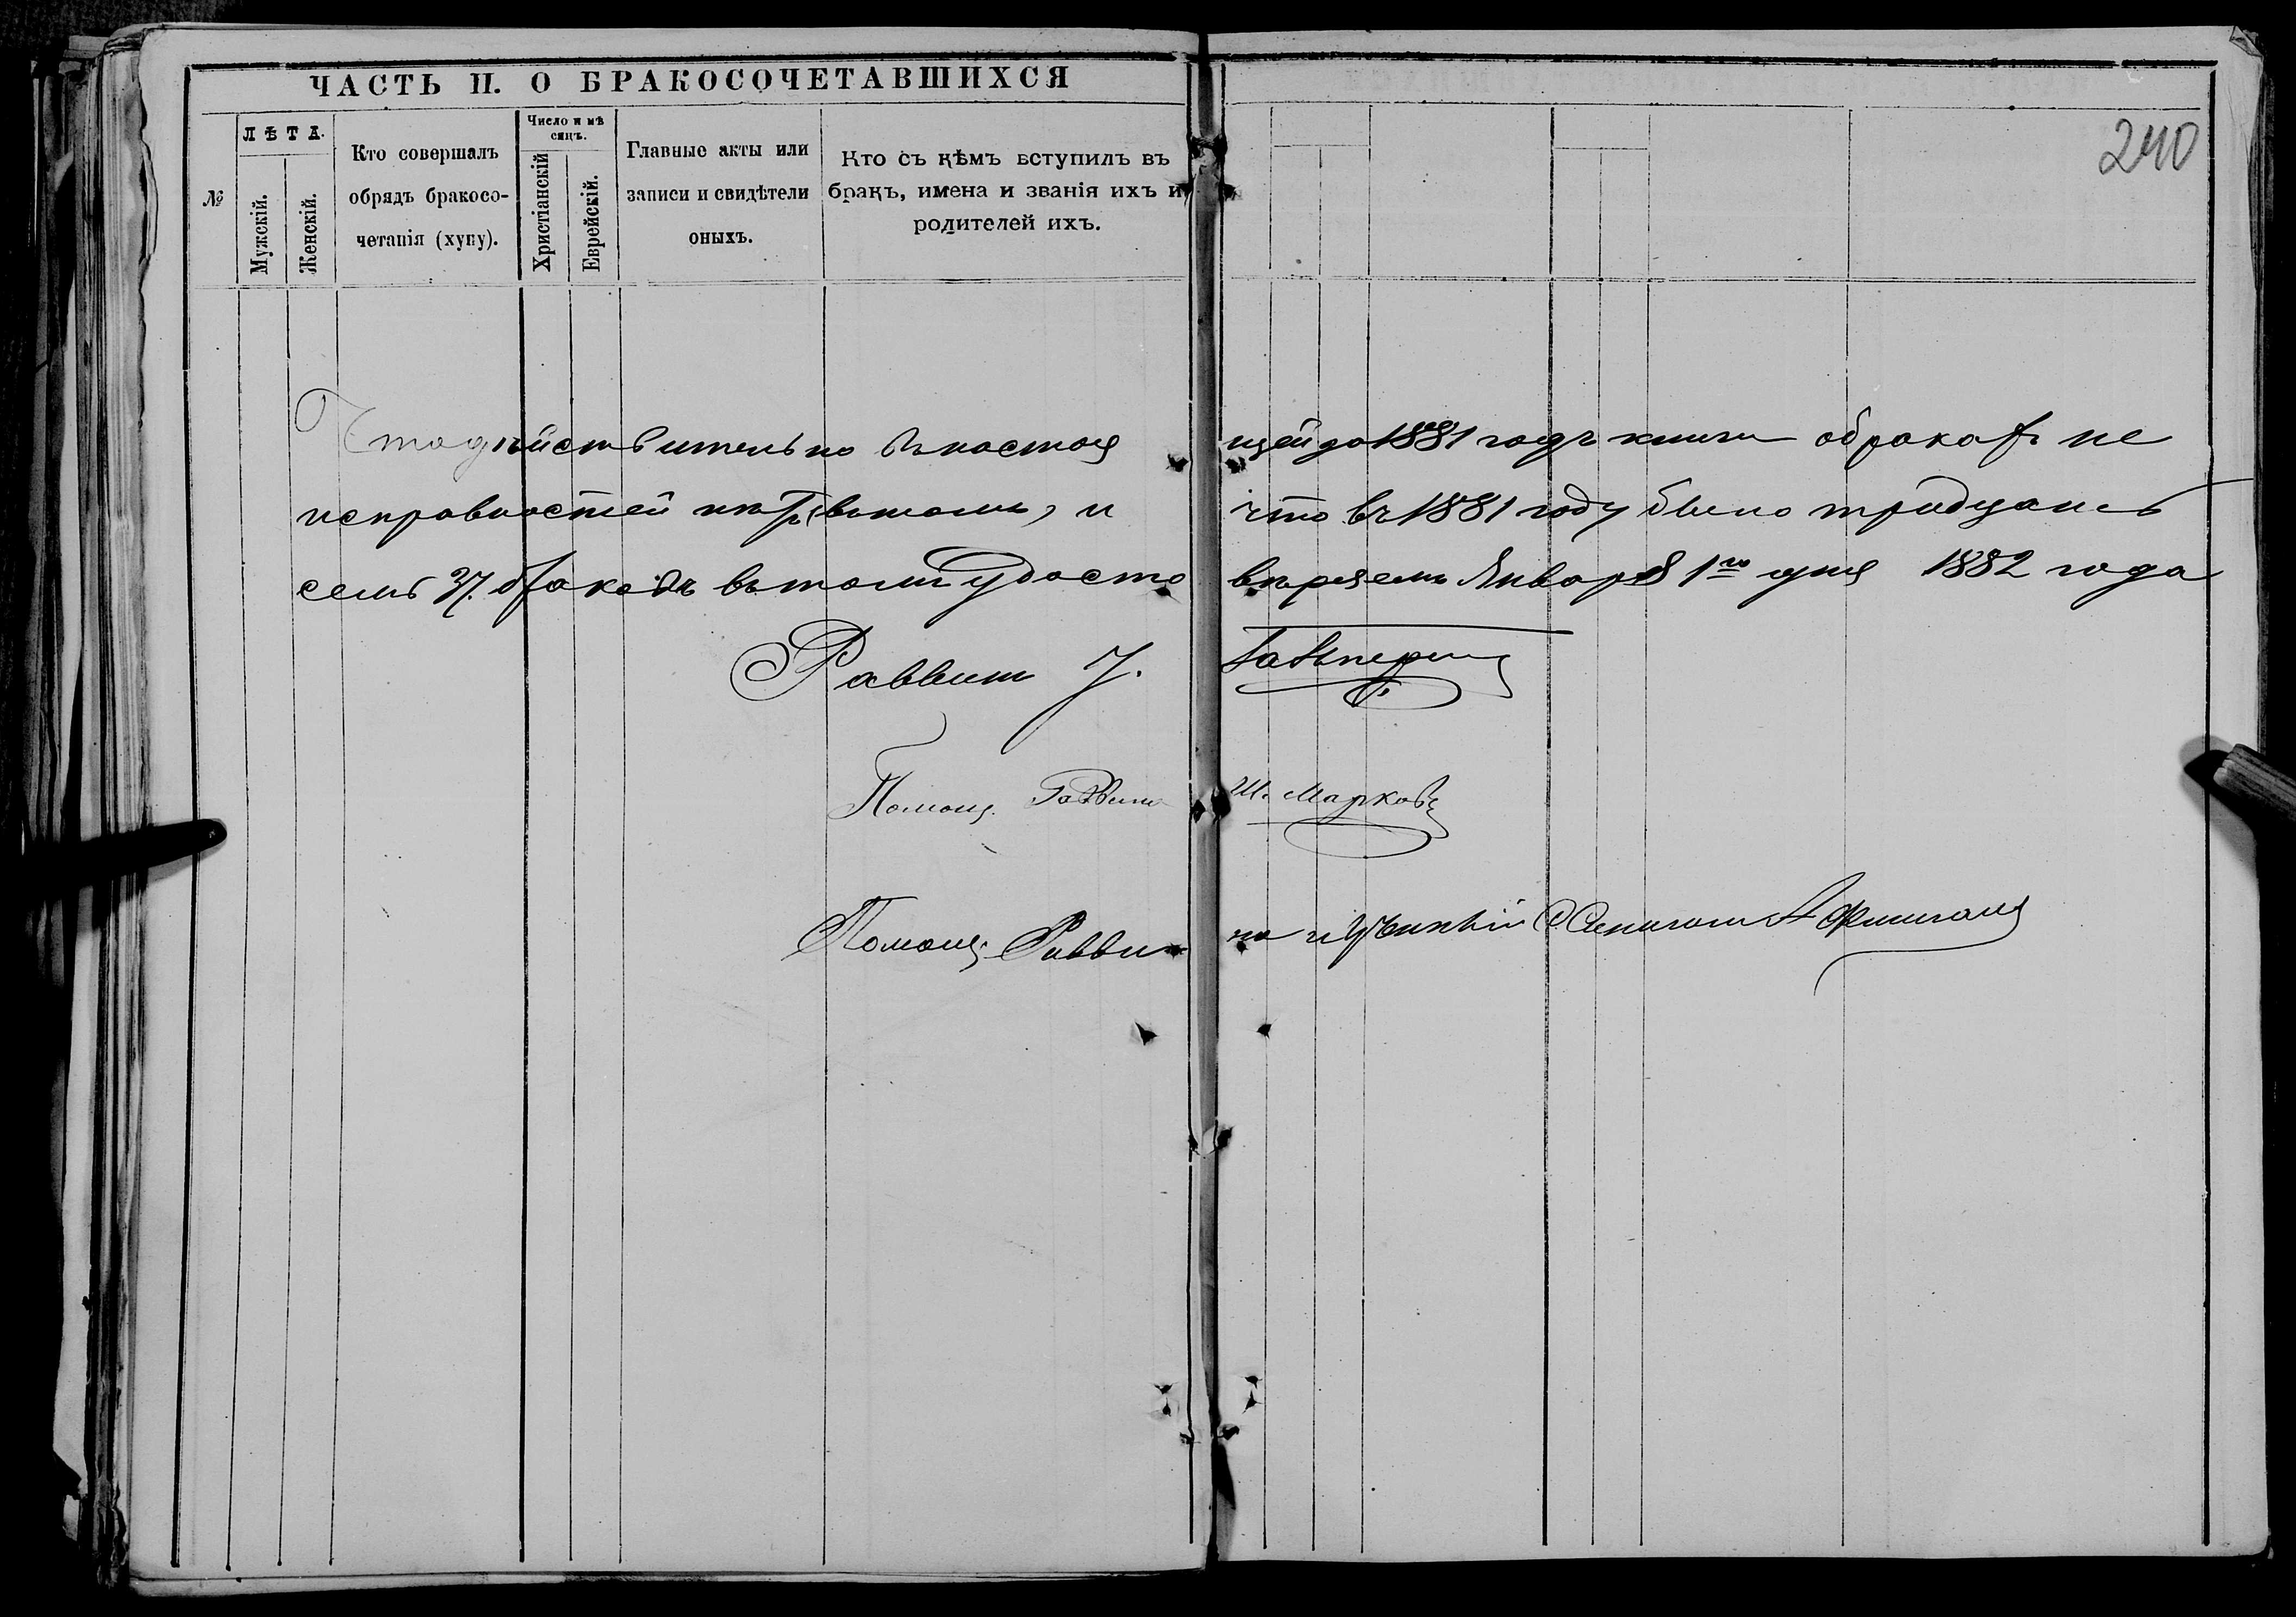 ЧАСТЬ II. О БРАКОСОЧЕТАВШИХСЯ
240
№
ЛѢТА.
Мужскій.
Женскій.
Кто совершалъ
обрядъ бракосо-
четанія (хупу).
Число и мѣ
сяцъ.
Христіанскій
Еврейскій.
Главные акты или
записи и свидѣтели
оныхъ.
Кто съ кѣмъ вступилъ въ
бракъ, имена и званія ихъ и
родителей ихъ.
Что дѣйствительно въ настоя щей за 1881 годъ книги о бракахъ не
исправностей нѣтъ, въ томъ, и что въ 1881 году было тридцать
семь 37. браковъ въ томъ удосто вѣряемъ Января 1го дня 1882 года
Раввинъ Гальперинъ
Помощ. Раввина Ш. Марковъ
Помощ. Раввина